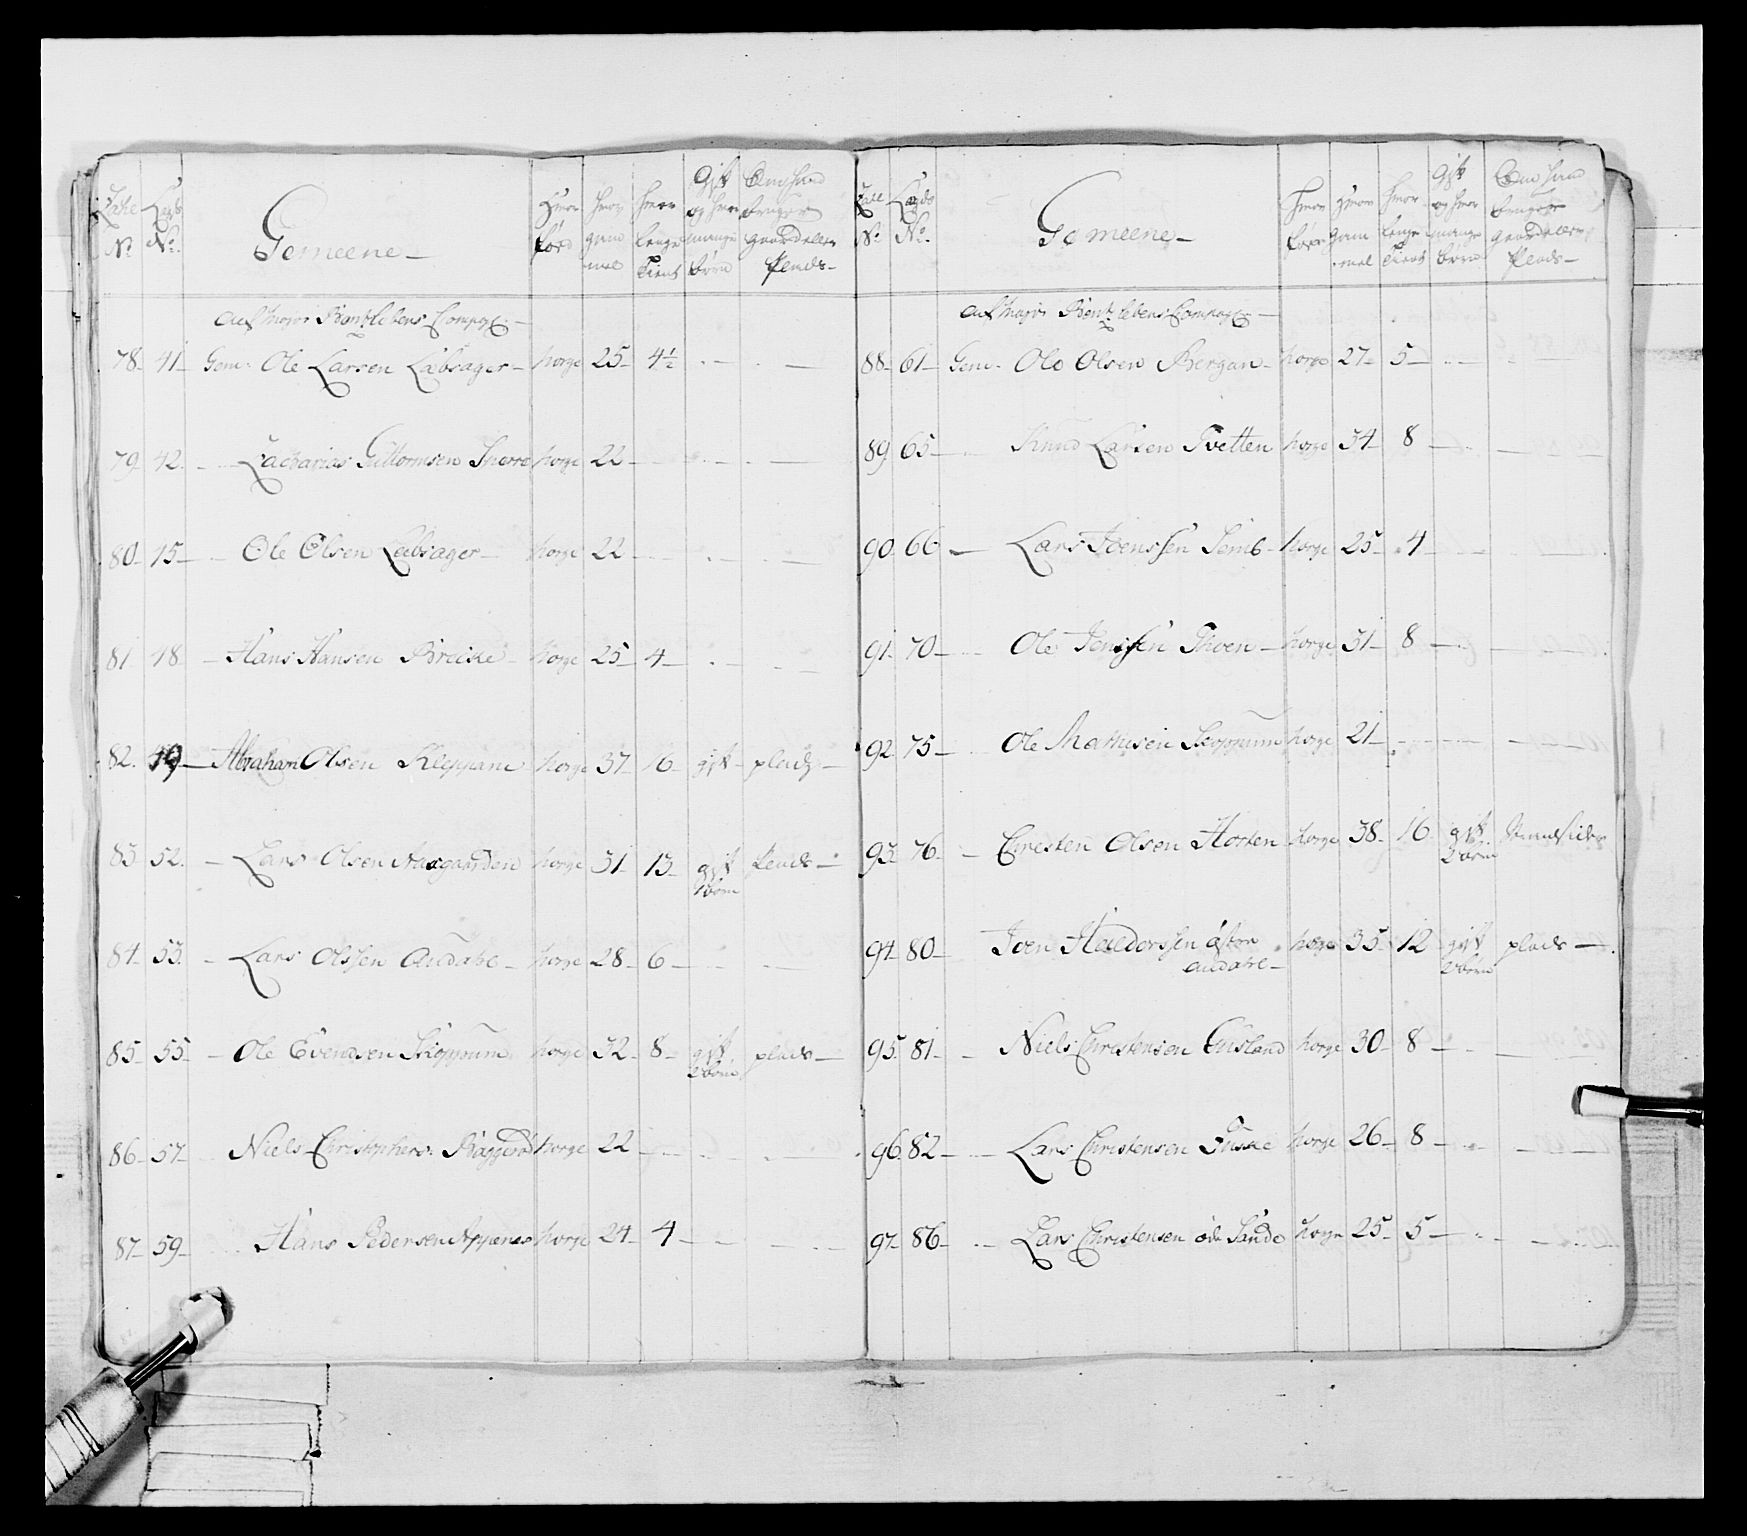 Gemeene
Hvor fød
Hvor gammel
Hvor lenge Tient
Gift og hvor mange børn
Om hand bruger gaard eller Plads
af Major Bentzlebens Compag:
78 41 Gem: Ole Larsen Læbsager horge 25 4½
79 42 Zacharias Guttormsen horge 22
80 45 Ole Olsen Læbsager horge 22
81 48 Hans Hansen Brecke horge 25 4
82 49 Abraham Olsen Kleppane horge 37 16 gift plads
83 52 Lars Olsen Aasgaarden horge 31 13 gift Plads
børn
84 53 Lars Olssen horge 28 6
85 55 Ole Evendsen Skoppum horge 32 8 gift plads
2 børn
86 57 Niels Christophers: horge 22
87 59 Hans Pedersen Appenæs horge 24 4
Gemeene
Hvor lenge Tient
Gift og hvor mange børn
Om hand bruger gaard eller Plads
af Major Bentzlebens Compag:
88 61 Gem: Ole Olsen Bergan horge 27 5
89 65 Knud Larsen Tvetten horge 34 8
90 66 Lars Joenssen Semb horge 25 4
91 70 Ole Jenssen Thoen horge 31 8
92 75 Ole Mathisen Skoppum horge 21
93 76 Christen Olsen Horten horge 38 16 gift Strandsider
2 børn
94 80 Joen Haldorssen horge 35 12 gift plads
2 børn
95 81 Niels Christensen horge 30 8
96 82 Lars Christensen horge 26 8
97 86 Lars Christensen øde Sande horge 25 5